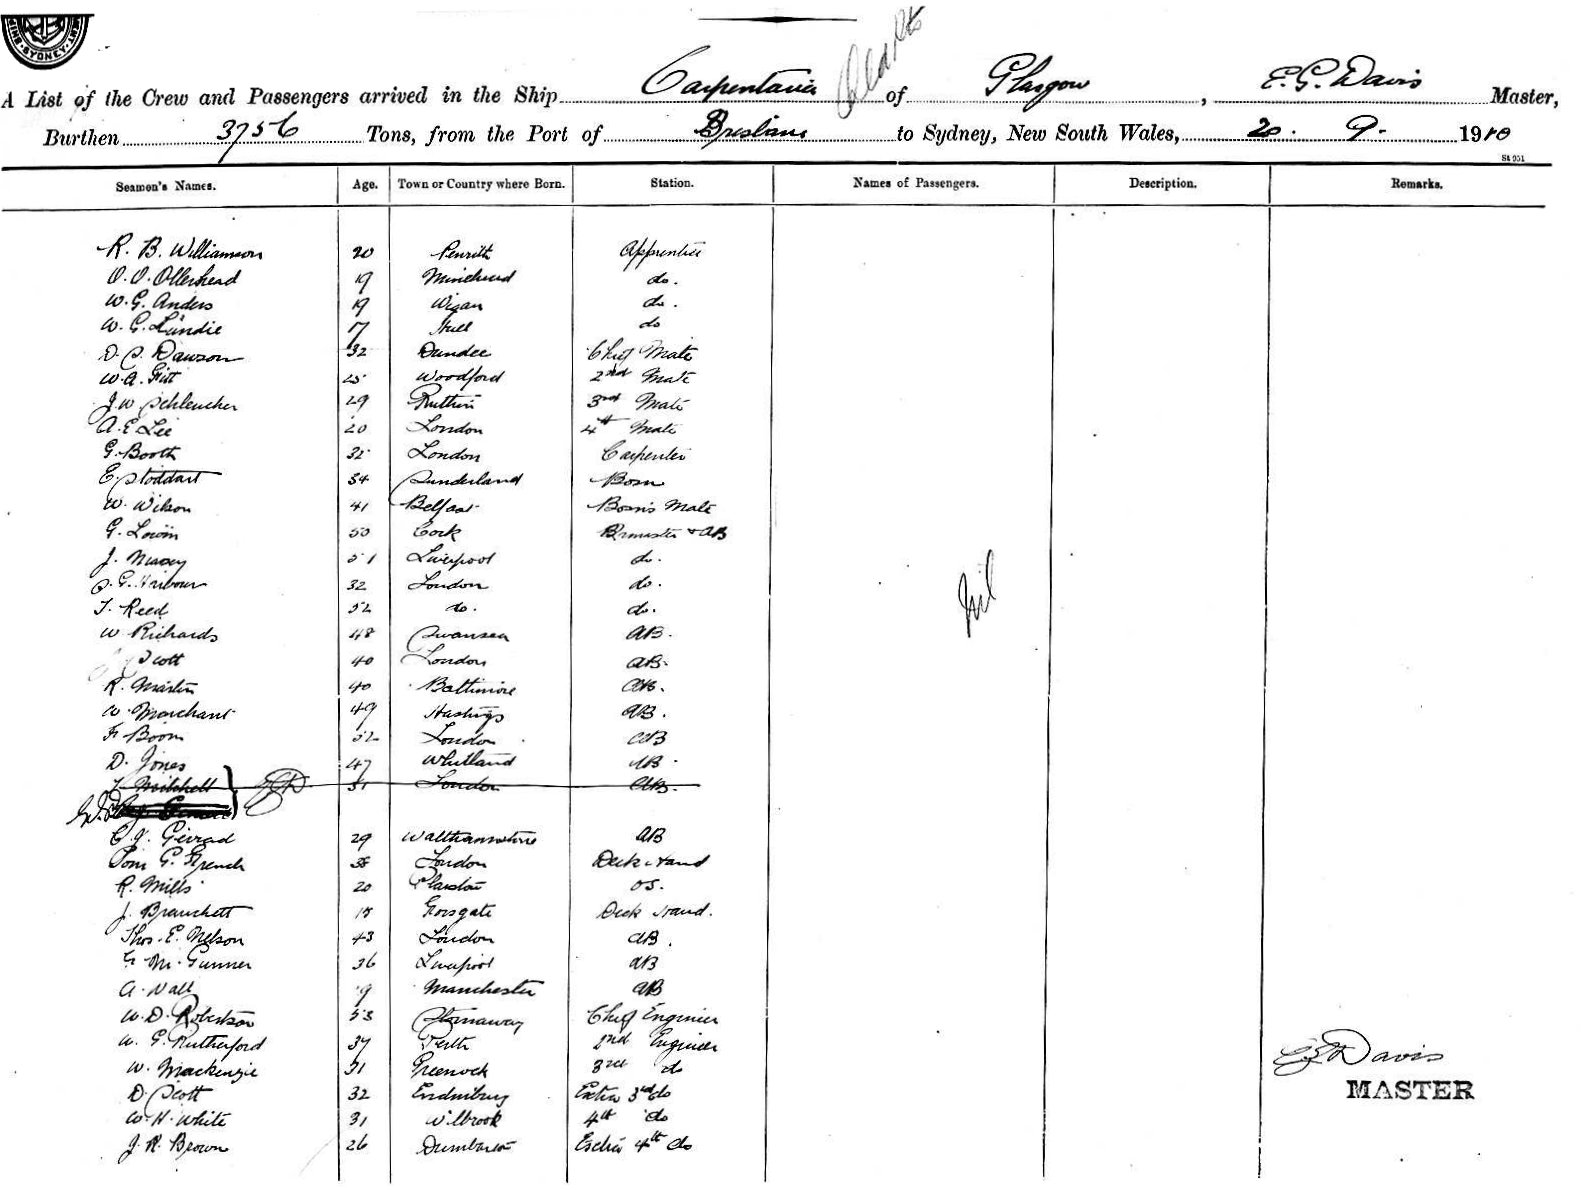 SYDNEY
A List of the Crew and Passengers arrived in the Ship Carpentaria of Glasgow, E. G. Davis Master,
Burthen 3756 Tons, from the Port of Brisbane to Sydney, New South Wales, 20. 9. 1910
St 951
Seamen's Names. Age. Town or Country where Born. Station. Names of Passengers. Description. Remarks.
R. B. Williamson 20 Penrith Apprentice
O. O. Ollerhead 19 Minehead do.
W. G. Anders 19 Wigan do.
W. G. Lundie 17 Hull do
D. S. Dawson 32 Dundee Chief Mate
W. A. Fitt 25 Woodford 2nd Mate
J. W. Schleucher 29 Ruthin 3rd Mate
A. E. Lee 20 London 4th Mate
G. Booth 32 London Carpenter
E. Stoddart 34 Sunderland Bosn
W. Wilson 41 Belfast Bosn's Mate
G. 50 Cork & AB
J. 51 Liverpool do.
G. Harbour 32 London do.
T. Reed 52 do. do.
W Richards 48 Swansea AB.
Scott 40 London AB.
R. Martin 40 Baltimore AB.
W. Marchant 49 Hastings AB.
F. Boom 52 London AB
D. Jones 47 Whitland AB.
T. Mitchell 51 London AB.
C. J. 29 Walthamstow AB
Tom G. French 38 London Deck Hand
R. Mills 20 Plaistow OS.
J. Branchett 18 Deck Hand.
Thos. E. Nelson 43 London AB.
M. Gunner 36 Liverpool AB
A. Wall 19 Manchester AB
W. D. Robertson 53 Stornaway Chief Engineer
W. G. Rutherford 37 Perth 2nd Engineer
W. Mackenzie 31 Greenock 3rd do
D. Scott 32 Edinburg Extra 3rd do
W. H. White 31 4th do
J. R. Brown 26 Dumbarton Extra 4th do
Nil
E G Davis
MASTER